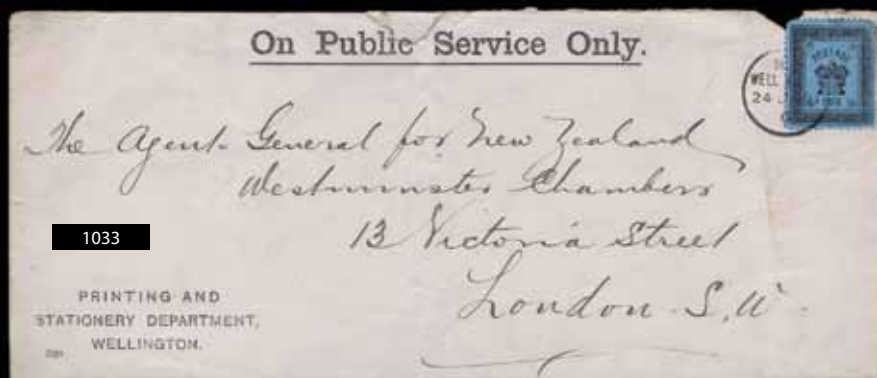 On Public Service Only.
WELL
24
The Agent-General for New Zealand
Westminster Chambers
13 Victoria Street
London S.W.
1033
PRINTING AND
STATIONERY DEPARTMENT,
WELLINGTON.